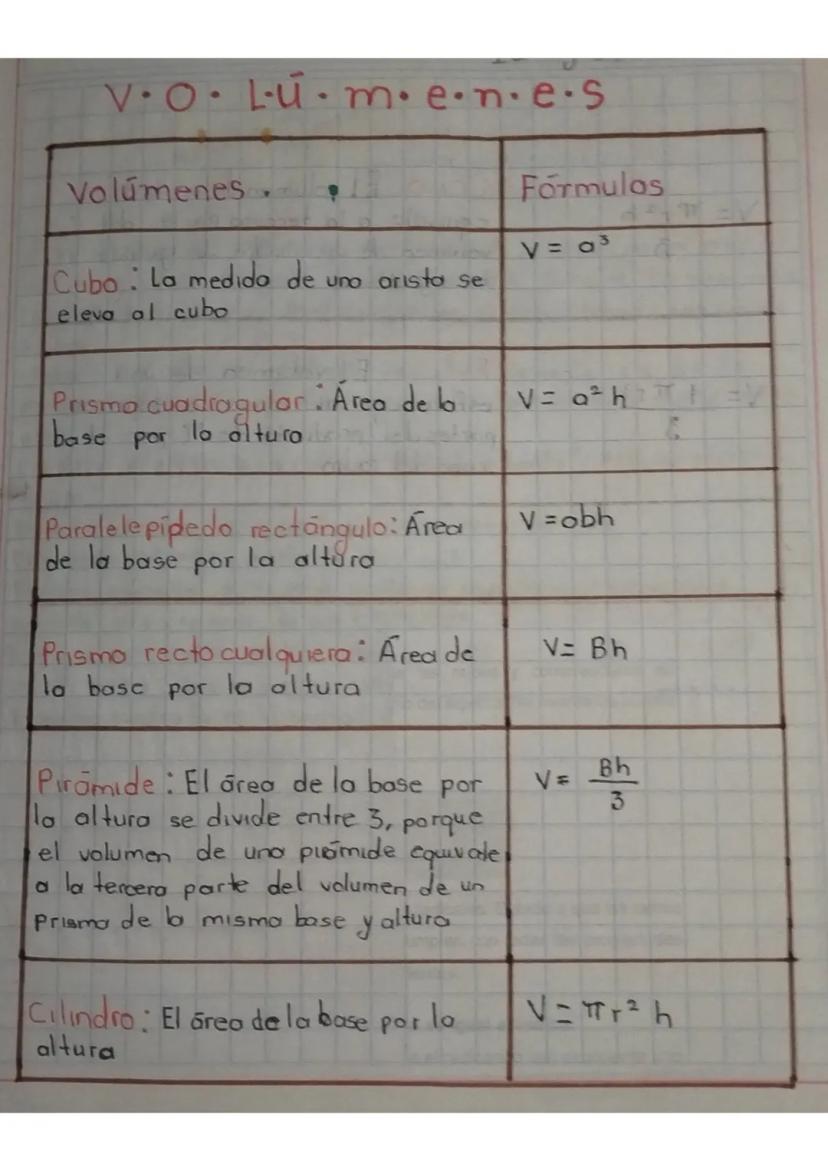 V·O·L·ú·m·e·n·e·s
Volúmenes.
Fórmulas
Cubo: La medida de una arista se
eleva al cubo
V = a³
Prisma cuadragular: Área de la
base por la altura
V = a² h
Paralelepípedo rectángulo: Área
de la base por la altura
V = abh
Prisma recto cualquiera: Área de
la base por la altura
V = Bh
Pirámide: El área de la base por
la altura se divide entre 3, porque
el volumen de una pirámide equivale
a la tercera parte del volumen de un
prisma de la misma base y altura
V = Bh
3
Cilindro: El área de la base por la
altura
V = πr² h